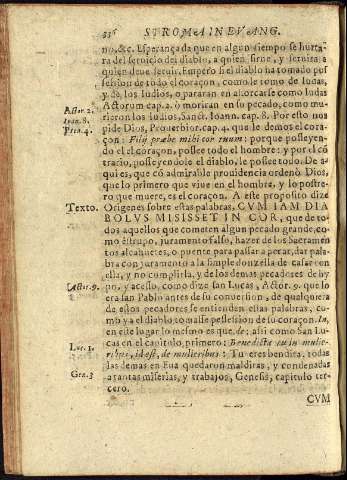 336 STROMA IN EVANG.
no, &c. Esperança da que en algun tiempo se hurta-
ra del seruicio del diablo, a quien sirue, y seruira a
quien deue seruir. Empero si el diablo ha tomado pos
session de todo el coraçon, como le tomo de Iudas,
y de los Iudios, o pararan en ahorcarse como Iudas
Actor. 2.
Actorum cap. 2. ò moriran en su pecado, como mu-
Ioan. 8.
rieron los Iudios, Sanct. Ioann. cap. 8. Por esto nos
Pro. 4.
pide Dios, Prouerbior. cap. 4. que le demos el cora-
çon: Fili præbe mihi cor tuum: porque posseyen-
do el coraçon, possee todo el hombre: y por el cõ
trario, posseyendole el diablo, le possee todo. De a-
qui es, que cõ admirable prouidencia ordenò Dios,
que lo primero que viue en el hombre, y lo postre-
ro que muere, es el coraçon. A este proposito dize
Texto.
Origenes sobre estas palabras, CVM IAM DIA
BOLVS MISISSET IN COR, que de to-
dos aquellos que cometen algun pecado grande, co
mo estrupo, juramento falso, hazer de los Sacramen
tos alcahuetes, o puente para passar a pecar, dar pala-
bra con juramento a la simple donzella de casar con
ella, y no cumplirla, y de los demas pecadores de hy
Actor. 9.
po, y acesso, como dize san Lucas, Actor. 9. que lo
era san Pablo antes de su conuersion, de qualquiera
de estos pecadores se entienden estas palabras, co-
mo ya el diablo tomasse possession de su coraçon. In,
en este lugar lo mesmo es que, de; assi como San Lu-
Luc. 1.
cas en el capitulo, primero: Benedicta tu in mulie-
ribus, idest, de mulieribus: Tu eres bendita. todas
las demas en Eua quedaron malditas, y condenadas
Gen. 3
a tantas miserias, y trabajos, Genesis, capitulo ter-
cero.
CVM